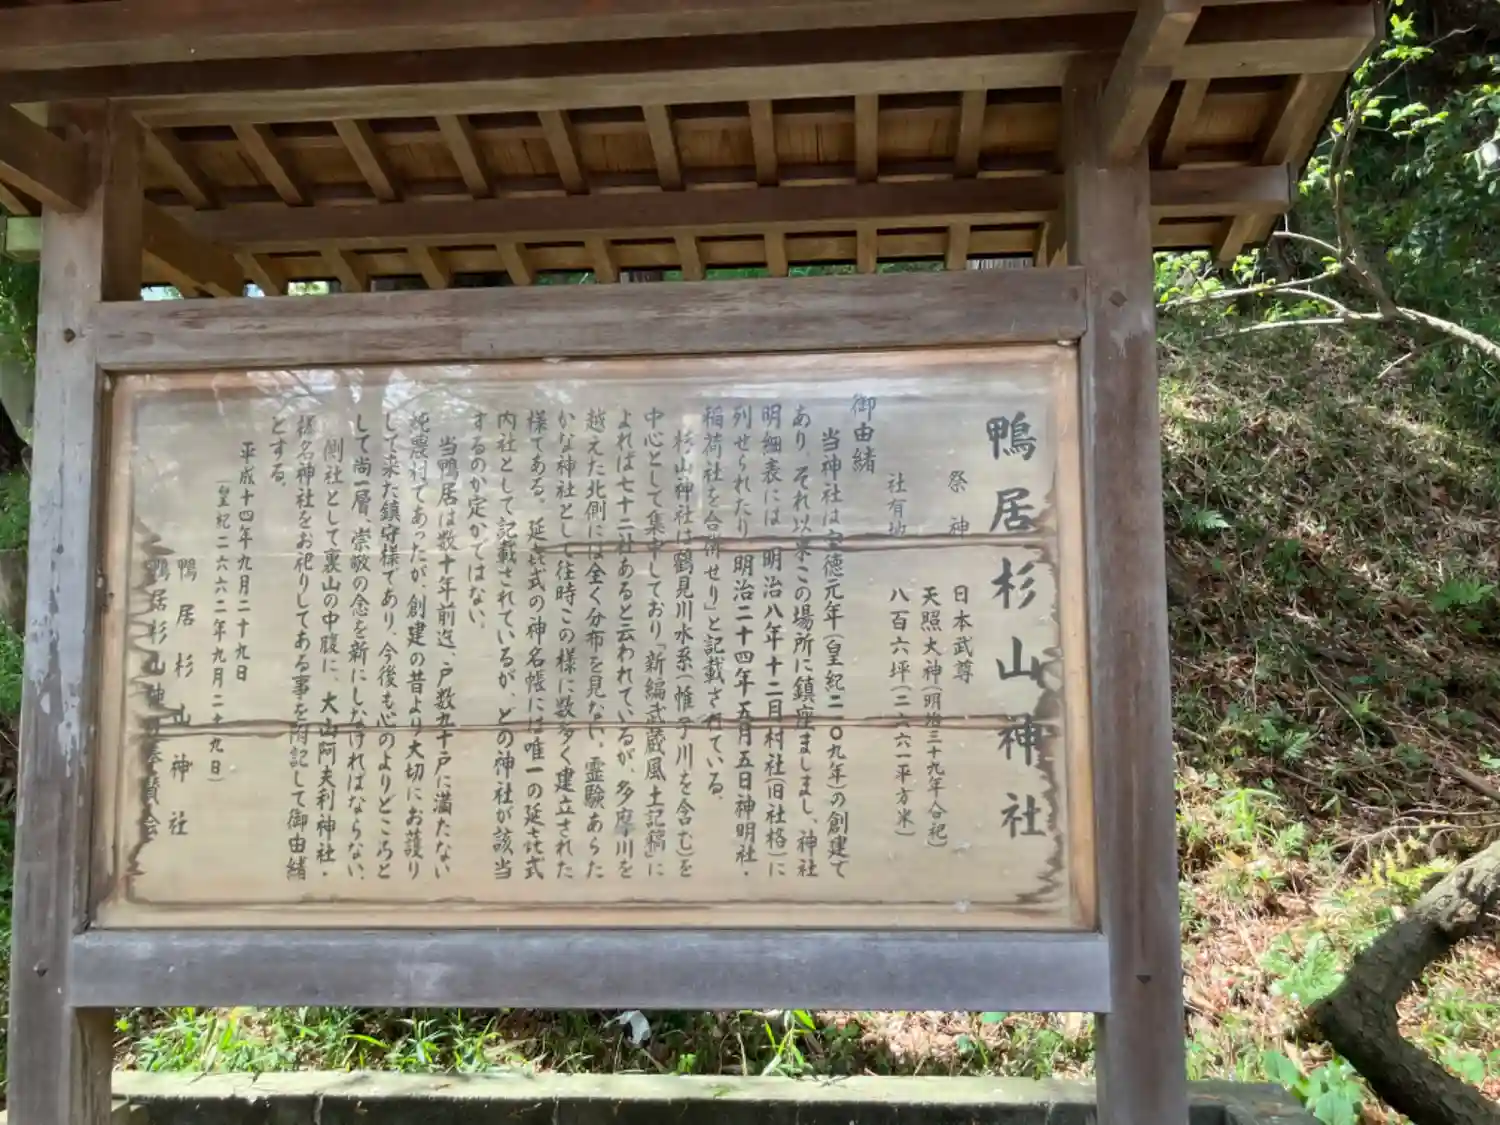 鴨居杉山神社
祭神 日本武尊
天照大神(明治三十九年合祀)
社有地 八百六坪(二六六一平方米)
御由緒
当神社は宝徳元年(皇紀二一〇九年)の創建で
あり、それ以来この場所に鎮座ましまし、神社
明細表には「明治八年十二月村社(旧社格)に
列せられたり、明治二十四年五月五日神明社・
稲荷社を合併せり」と記載されている。
杉山神社は鶴見川水系(帷子川を含む)を
中心として集中しており「新編武蔵風土記稿」に
よれば七十二社あると云われているが、多摩川を
越えた北側には全く分布を見ない。霊験あらた
かな神社として往時この様に数多く建立された
様である。延㐂式の神名帳には唯一の延㐂式
内社として記載されているが、どの神社が該当
するのか定かではない。
当鴨居は数十年前迄、戸数九十戸に満たない
純農村であったが、創建の昔より大切にお護り
して来た鎮守様であり、今後も心のよりどころと
して尚一層、崇敬の念を新にしなければならない。
側社として裏山の中腹に、大山阿夫利神社・
榛名神社をお祀りしてある事を附記して御由緒
とする。
平成十四年九月二十九日
(皇紀二六六二年九月二十九日)
鴨居杉山神社
鴨居杉山神社奉賛会